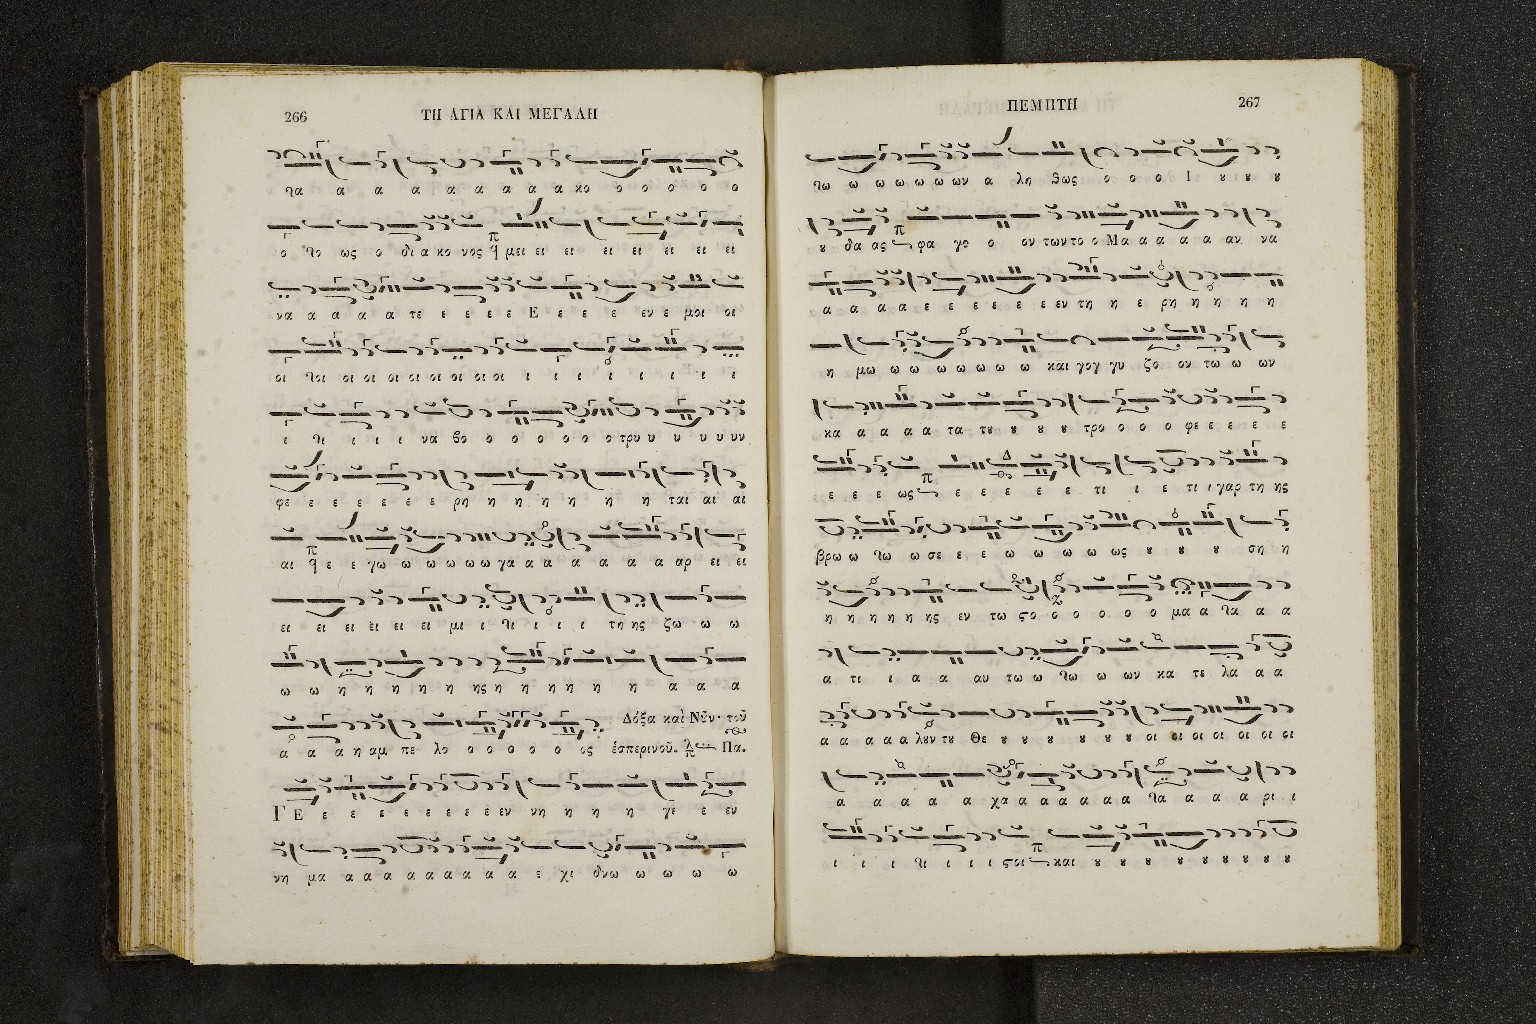 266 ΤΗ ΑΓΙΑ ΚΑΙ ΜΕΓΑΛΗ
τα α α α α α α α α α κο ο ο ο ο ο
ο το ως ο δι α κο νος η μει ει ει ει ει ει ει
να α α α α τε ε ε ε ε Ε ε ε ε εν ε μοι οι
οι τοι οι οι οι οι οι οι οι οι ι ι ι ι ι ι ι ι
ι τι ι ι ι να βο ο ο ο ο ο ο ο τρυ υ υ υ υ υν
φε ε ε ε ε ε ε ρη η η η η η η η ται αι αι
αι η ε ε γω ω ω ω ω ω γα α α α α α α αρ ει ει
ει ει ει ει ει ει μι ι τι ι ι ι τη ης ζω ω ω
ω ω η η η η η ης η η η η η η α α α
α α α η αμ πε λο ο ο ο ο ο ος ἑσπερινοῦ. Πα.
Δόξα καὶ Νῦν· τοῦ
Γ Ε ε ε ε ε ε ε ε ε εν νη η η η γε ε εν
νη μα α α α α α α α α α ε χι δνω ω ω ω ω
ΠΕΜΠΤΗ 267
τω ω ω ω ω ω ων α λη θως ο ο ο Ι ȣ ȣ ȣ
ȣ δα ας φα γο ο ον των το ο Μα α α α α αν να
α α α α ε ε ε ε ε ε εν τη η ε ρη η η η η
η μω ω ω ω ω ω ω και γογ γυ ζο ον τω ω ων
κα α α α α τα τȣ ȣ ȣ ȣ τρο ο ο ο φε ε ε ε ε
ε ε ε ως ε ε ε ε ε ε τι ι ε τι ι γαρ τη ης
βρω ω τω ω σε ε ε ω ω ω ω ως ȣ ȣ ȣ ση η
η η η η η ης εν τω ϛο ο ο ο ο ο μα α τα α α
α τι ι α α αυ τω ω τω ω ων κα τε λα α α
α α α α α λȣν τȣ Θε ȣ ȣ ȣ ȣ ȣ ȣ ȣ οι οι οι οι οι οι οι
α α α α α χα α α α α α α τα α α α ρι ι
ι ι ι τι ι ι ι ϛοι και ȣ ȣ ȣ ȣ ȣ ȣ ȣ ȣ ȣ